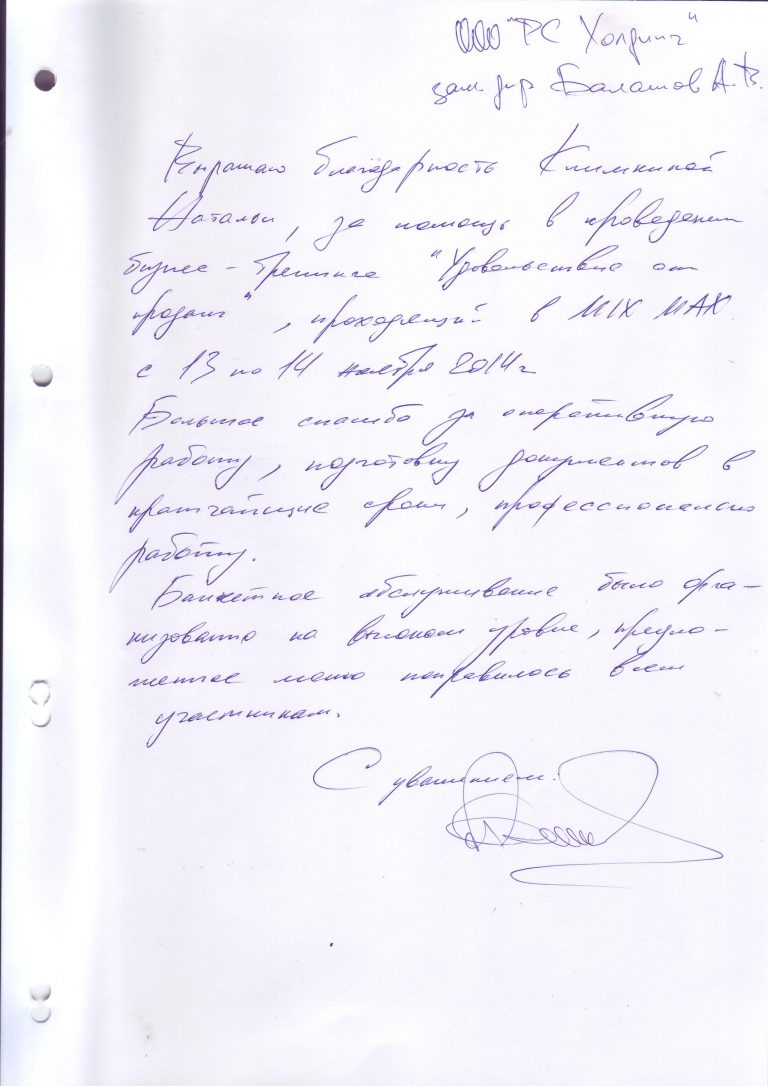 ООО "РС Холдинг"
зам. дир Балашов А.В.
Выражаю благодарность Климкиной
Натальи, за помощь в проведении
бизнес-тренинга "Удовольствие от
продаж", проходящий в MIX MAX
с 13 по 14 ноября 2014г
Большое спасибо за оперативную
работу, подготовку документов в
кратчайшие сроки, профессиональную
работу.
Банкетное обслуживание было орга-
низованно на высоком уровне, предло-
женное меню понравилось всем
участникам.
С уважением: